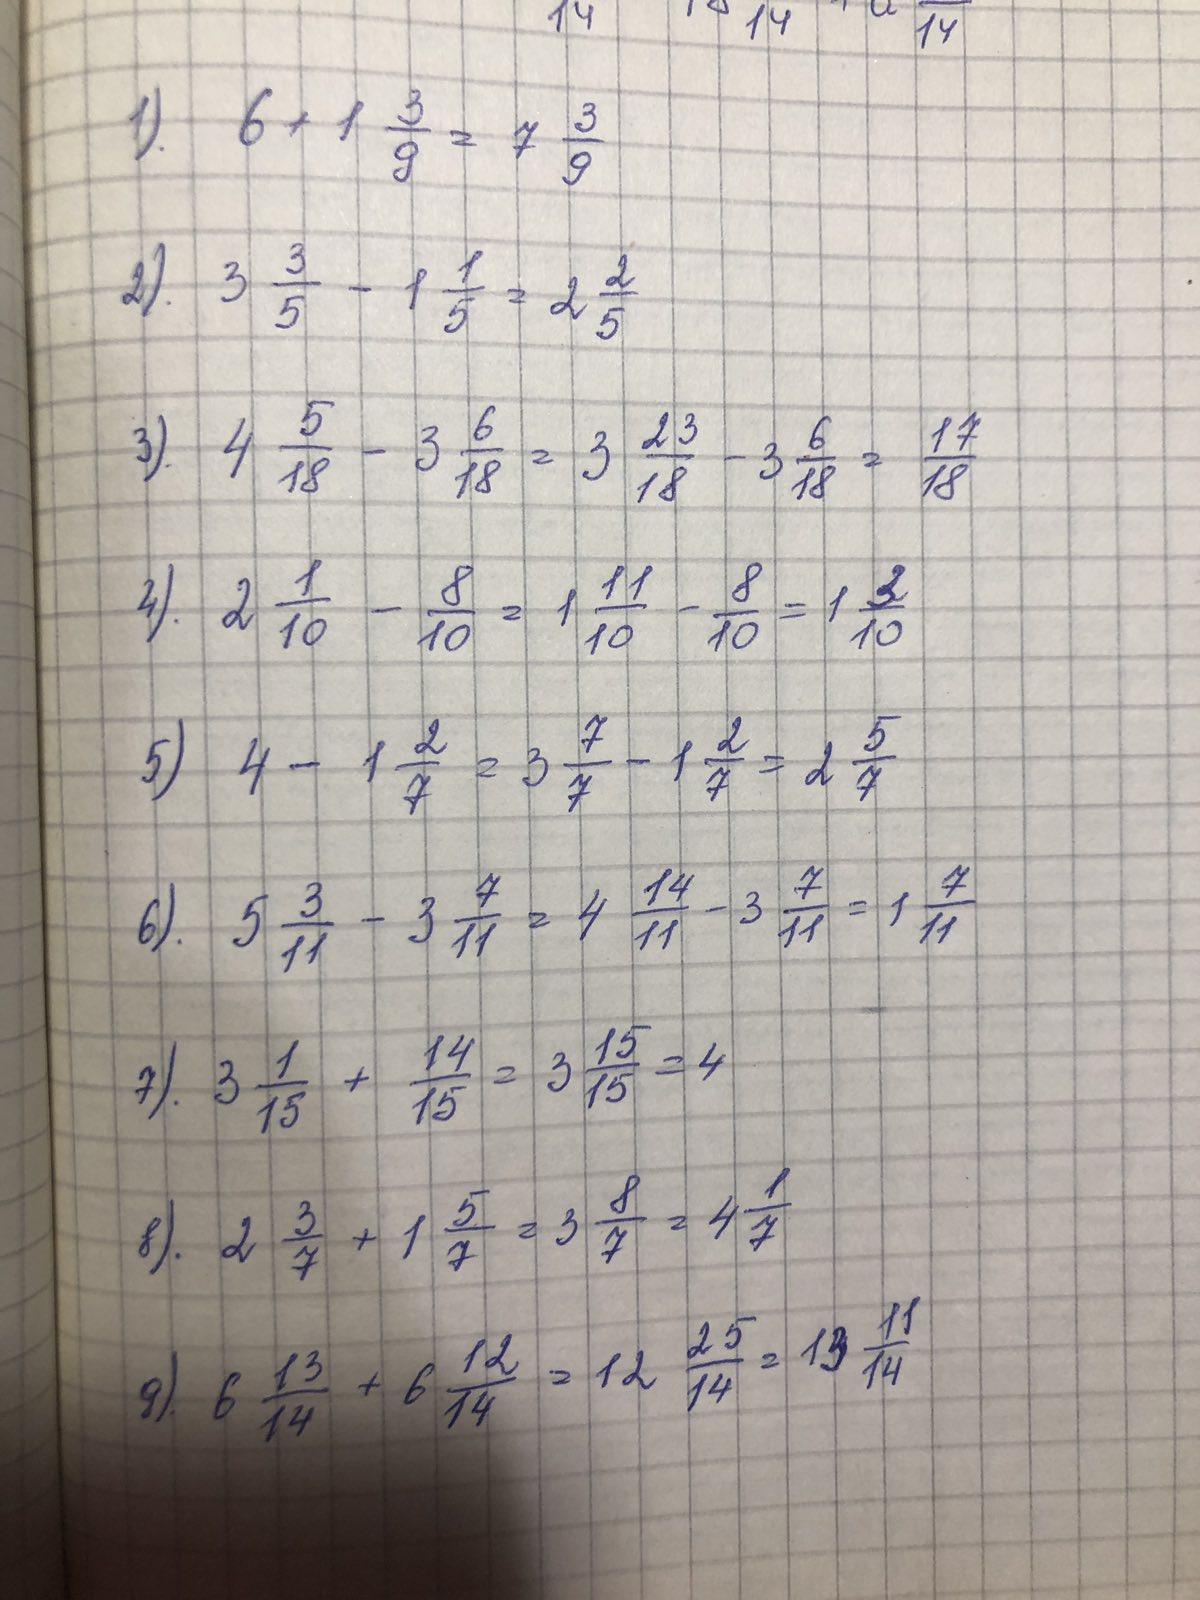 14 14 14
1). 6 + 1 3/9 = 7 3/9
2). 3 3/5 - 1 1/5 = 2 2/5
3). 4 5/18 - 3 6/18 = 3 23/18 - 3 6/18 = 17/18
4). 2 1/10 - 8/10 = 1 11/10 - 8/10 = 1 3/10
5) 4 - 1 2/7 = 3 7/7 - 1 2/7 = 2 5/7
6). 5 3/11 - 3 7/11 = 4 14/11 - 3 7/11 = 1 7/11
7). 3 1/15 + 14/15 = 3 15/15 = 4
8). 2 3/7 + 1 5/7 = 3 8/7 = 4 1/7
9). 6 13/14 + 6 12/14 = 12 25/14 = 13 11/14